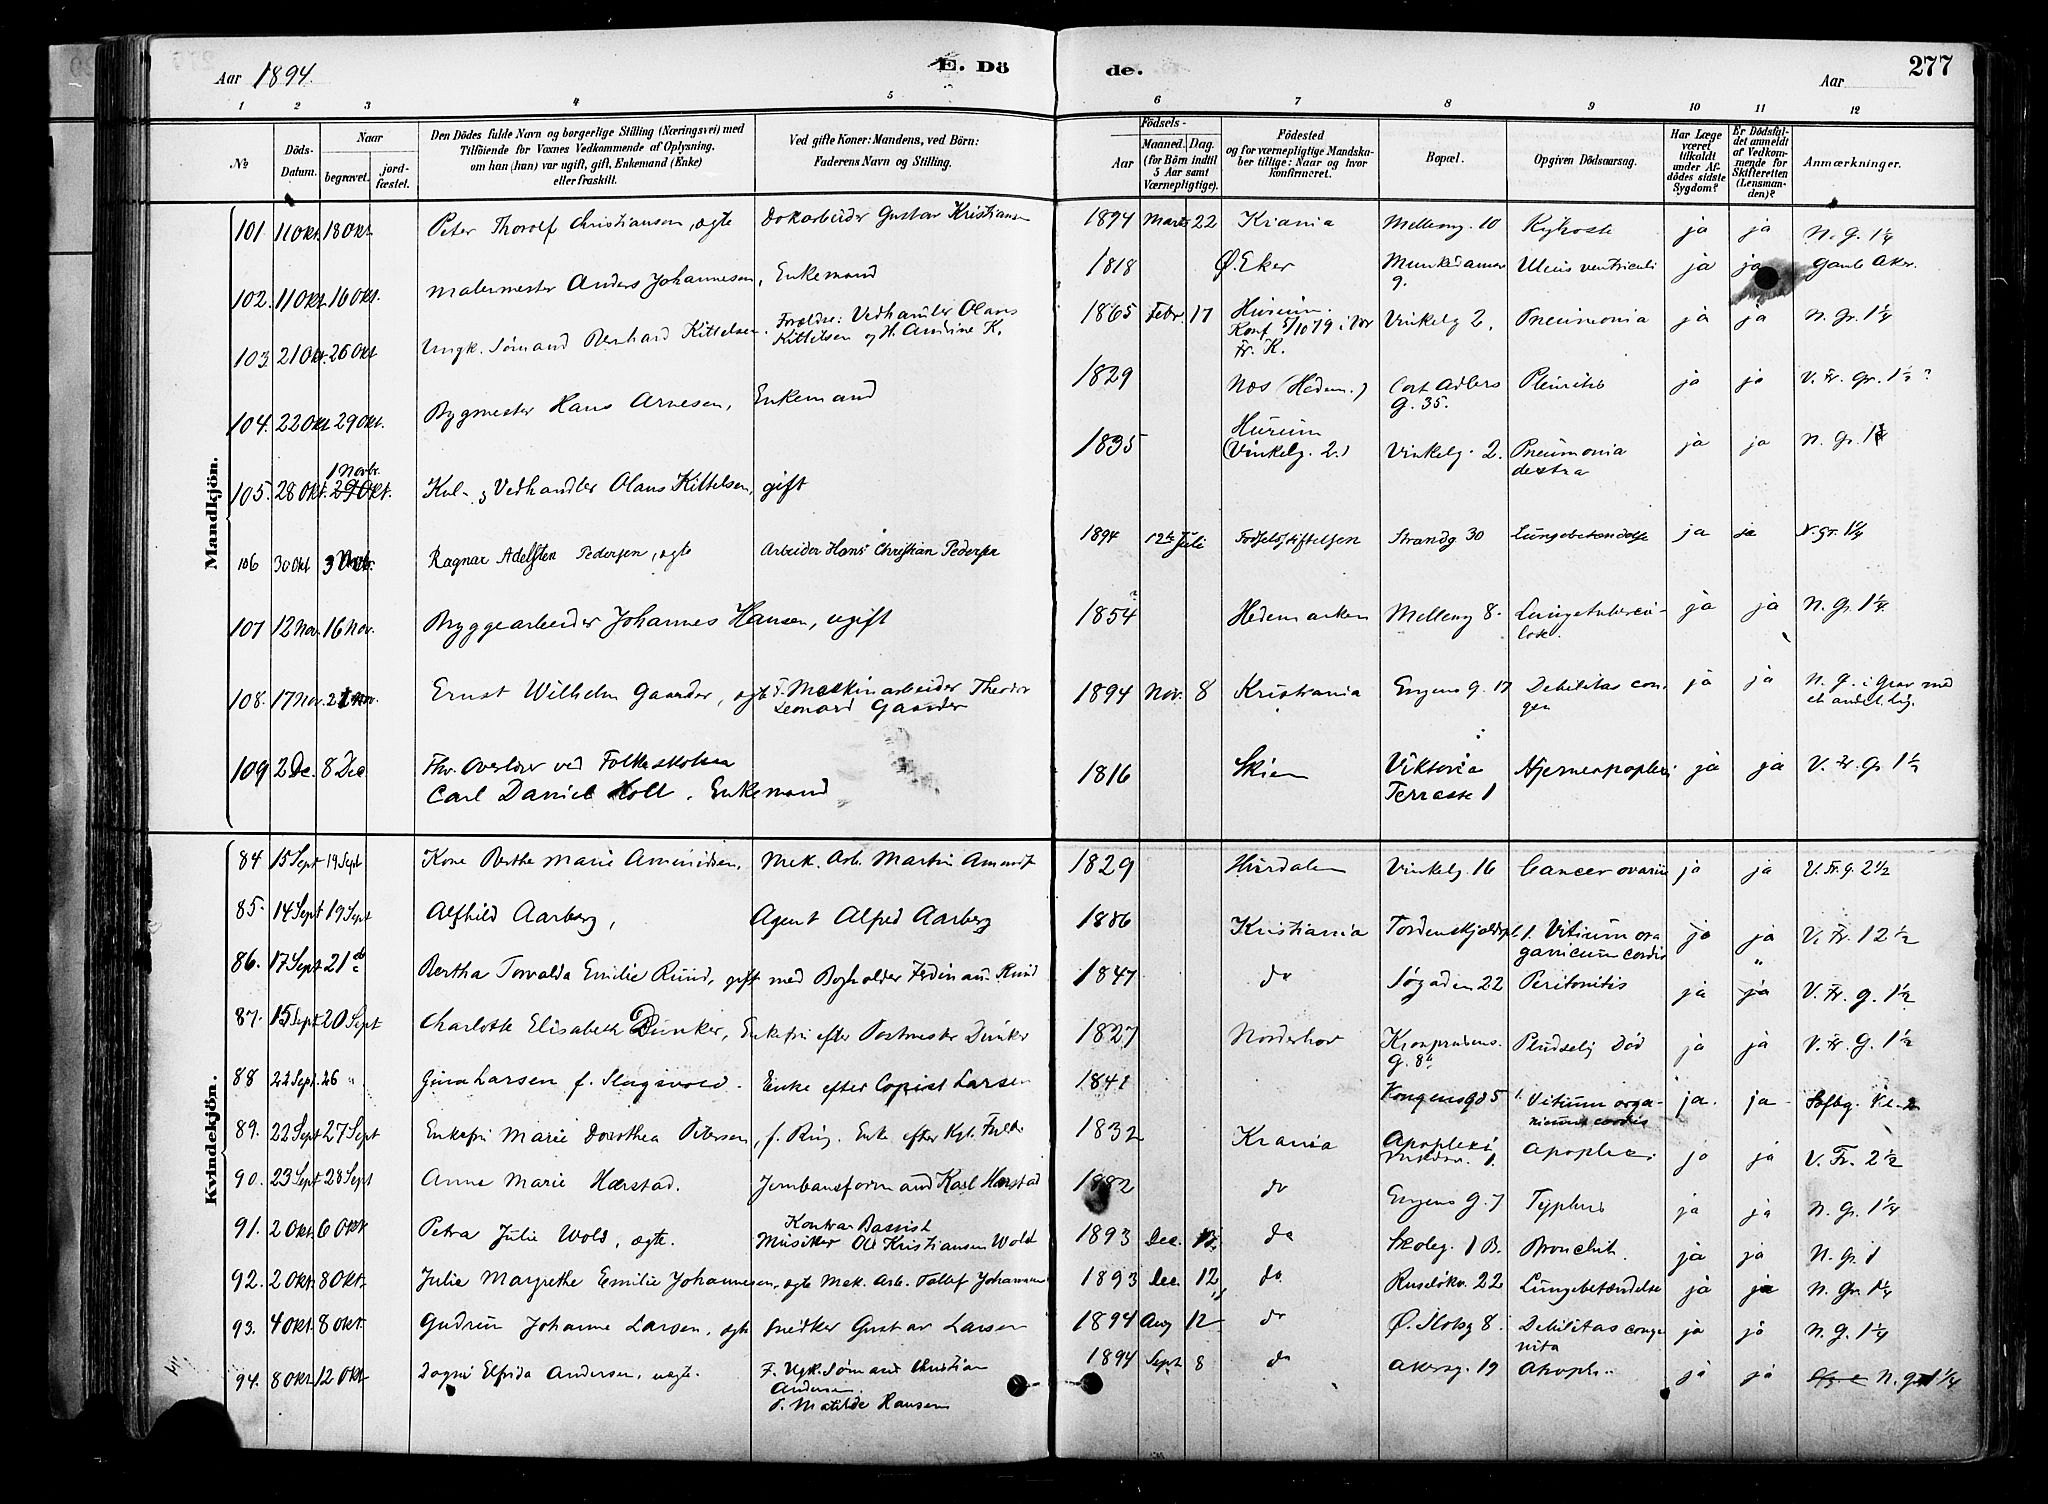 Aar 1894.
E. Dö
de.
Aar
277
1 2 3 4 5 6 7 8 9 10 11 12
№
Döds-
Datum.
Naar
begravet.
jord-
fæstet.
Den Dödes fulde Navn og borgerlige Stilling (Næringsvei) med
Tilföiende for Voxnes Vedkommende af Oplysning,
om han (hun) var ugift, gift, Enkemand (Enke)
eller fraskilt.
Ved gifte Koner: Mandens, ved Börn:
Faderens Navn og Stilling.
Födsels-
Aar
Maaned. Dag.
(for Börn indtil
5 Aar samt
Værnepligtige).
Födested
og for værnepligtige Mandska-
ber tillige: Naar og hvor
konfirmeret.
Bopæl.
Opgiven Dödsaarsag.
Har Læge
været
tilkaldt
under Af-
dödes sidste
Sygdom?
Er Dödsfal-
det anmeldt
af Vedkom-
mende for
Skifteretten
(Lensman-
den)?
Anmærkninger.
Mandkjön.
101 11 Okt. 18 Okt. Peter Thorolf Christiansen, ægte Dokarbeider Gustav Kristiansen 1894 Marts 22 Krania Mellemg. 10 Kighoste ja ja N. G. 1¼
102. 11 Okt. 16 Okt. Malermester Anders Johannesen, Enkemand 1818 Ø. Eker Munkedamsv 9. Ulcus ventriculi ja ja Gamle Aker.
103 21 Okt. 26 Okt Ungk. Sømand Bernhard Kittelsen. Forældre: Vedhandler Olaus
Kittelsen og H. Andrine K. 1865 Febr. 17 Hurum.
Konf 5/10 79 i Vor
Fr. K. Vinkelg 2, Pneumonia ja ja N. Gr. 1¼
104. 22 Okt 29 Okt. Bygmester Hans Arnesen, Enkemand 1829 Næs (Hedem.) Cort Adlers
G. 35. Pleuritis ja ja V. Fr. Gr. 1½ ?
105. 28 Okt. 1 Novbr.
29 Okt. Kul- og Vedhandler Olaus Kittelsen, gift 1835 Hurum
(Vinkelg. 2.) Vinkelg. 2. Pneumonia
dextra ja ja N. Gr. 1¼
106 30 Okt 3 Novbr. Ragnar Adelsten Pedersen, ægte Arbeider Hans Christian Pedersen 1894 12te Juli Fødselsstiftelsen Strandg 30 Lungebetændelse ja ja N. Gr. 1¼
107 12 Nov. 16 Nov. Bryggearbeider Johannes Hansen, ugift 1854 ? Hedemarken Mellemg 8. Lungetubercu-
lose. ja ja N. G. 1¼
108. 17 Nov. 21 Nov. Ernst Wilhelm Gaarder, ægte F. Maskinarbeider Theodor
Leonard Gaarder 1894 Nov. 8 Kristiania Engens G. 17 Debilitas con-
gen ja ja N. G. i Grav med
et andet Lig.
109 2 De. 8 Dec Fhv. Overlærer ved Folkeskolen
Carl Daniel Holt, Enkemand 1816 Skien Viktoria
Terrasse 1 Hjerneapoplexi ja ja V. Fr. Gr 1½
Kvindekjön.
84 15 Sept 19 Sept Kone Berthe Marie Amundsen, Mek. Arb. Martin Amunds 1829 Hurdalen Vinkelg. 16 Cancer ovarii ja ja V. Fr. G. 2½
85. 14 Sept 19 Sept Alfhild Aarberg, Agent Alfred Aarberg 1886 Kristiania Tordenskjoldspl. 1. Vitium or-
ganicum cordis ja ja V. Fr. 1 2½
86. 17 Sept 21 do Bertha Torvalda Emilie Ruud, gift med Bogholder Ferdinan Ruud 1847 do Søgaden 22 Peritonitis ja ja V. Fr. G. 1½
87. 15 Sept 20 Sept Charlotte Elisabeth Dunker, Enkefru efter Postmester Dunker 1827 Norderhov Kronprindsens-
G. 8b Pludselig Død ja ja V. Fr. G. 1½
88 22 Sept. 26 " Gina Larsen f. Slagsvold. Enke efter Copist Larsen 1841 Kongensgd 5 Vitium orga-
nicum cordis ja. ja
89. 22 Sept 27 Sept Enkefru Marie Dorothea Petersen, f. Ring. 1832 Krania Apoplexi ja ja V. Fr. 2½
90. 23 Sept 28 Sept Anne Marie Harstad. Jernbaneformand Karl Harstad 1882 do Engens G. 7 Typhus ja ja N. G. 1¼
91. 2 Okt. 6 Okt. Petra Julie Wold, ægte. Kontra Bassist
Musiker Ole Kristiansen Wold 1893 Dec. do Skoleg. 1 B. Bronchit. ja ja N. gr. 1
92. 2 Okt. 8 Okt. Julie Margrethe Emilie Johannesen, ægte Mek. Arb. Tollef Johannesen 1893 Dec. 12 do Ruseløkv. 22 Lungebetændelse ja ja N. Gr. 1¼
93. 4 Okt. 8 Okt. Gudrun Johanne Larsen, ægte Snedker Gustav Larsen 1894 Aug 12 do Ø. Slotsg 8. Debilitas conge-
nita ja ja N. G. 1¼
94. 8 Okt 12 Okt Dagny Elfrida Andersen, uægte. F. Ugk. Sømand Christian
Andersen.
M. Matilde Hansen 1894 Sept. 8 do Akersg. 19 Atroph. ja ja N. gr 1¼